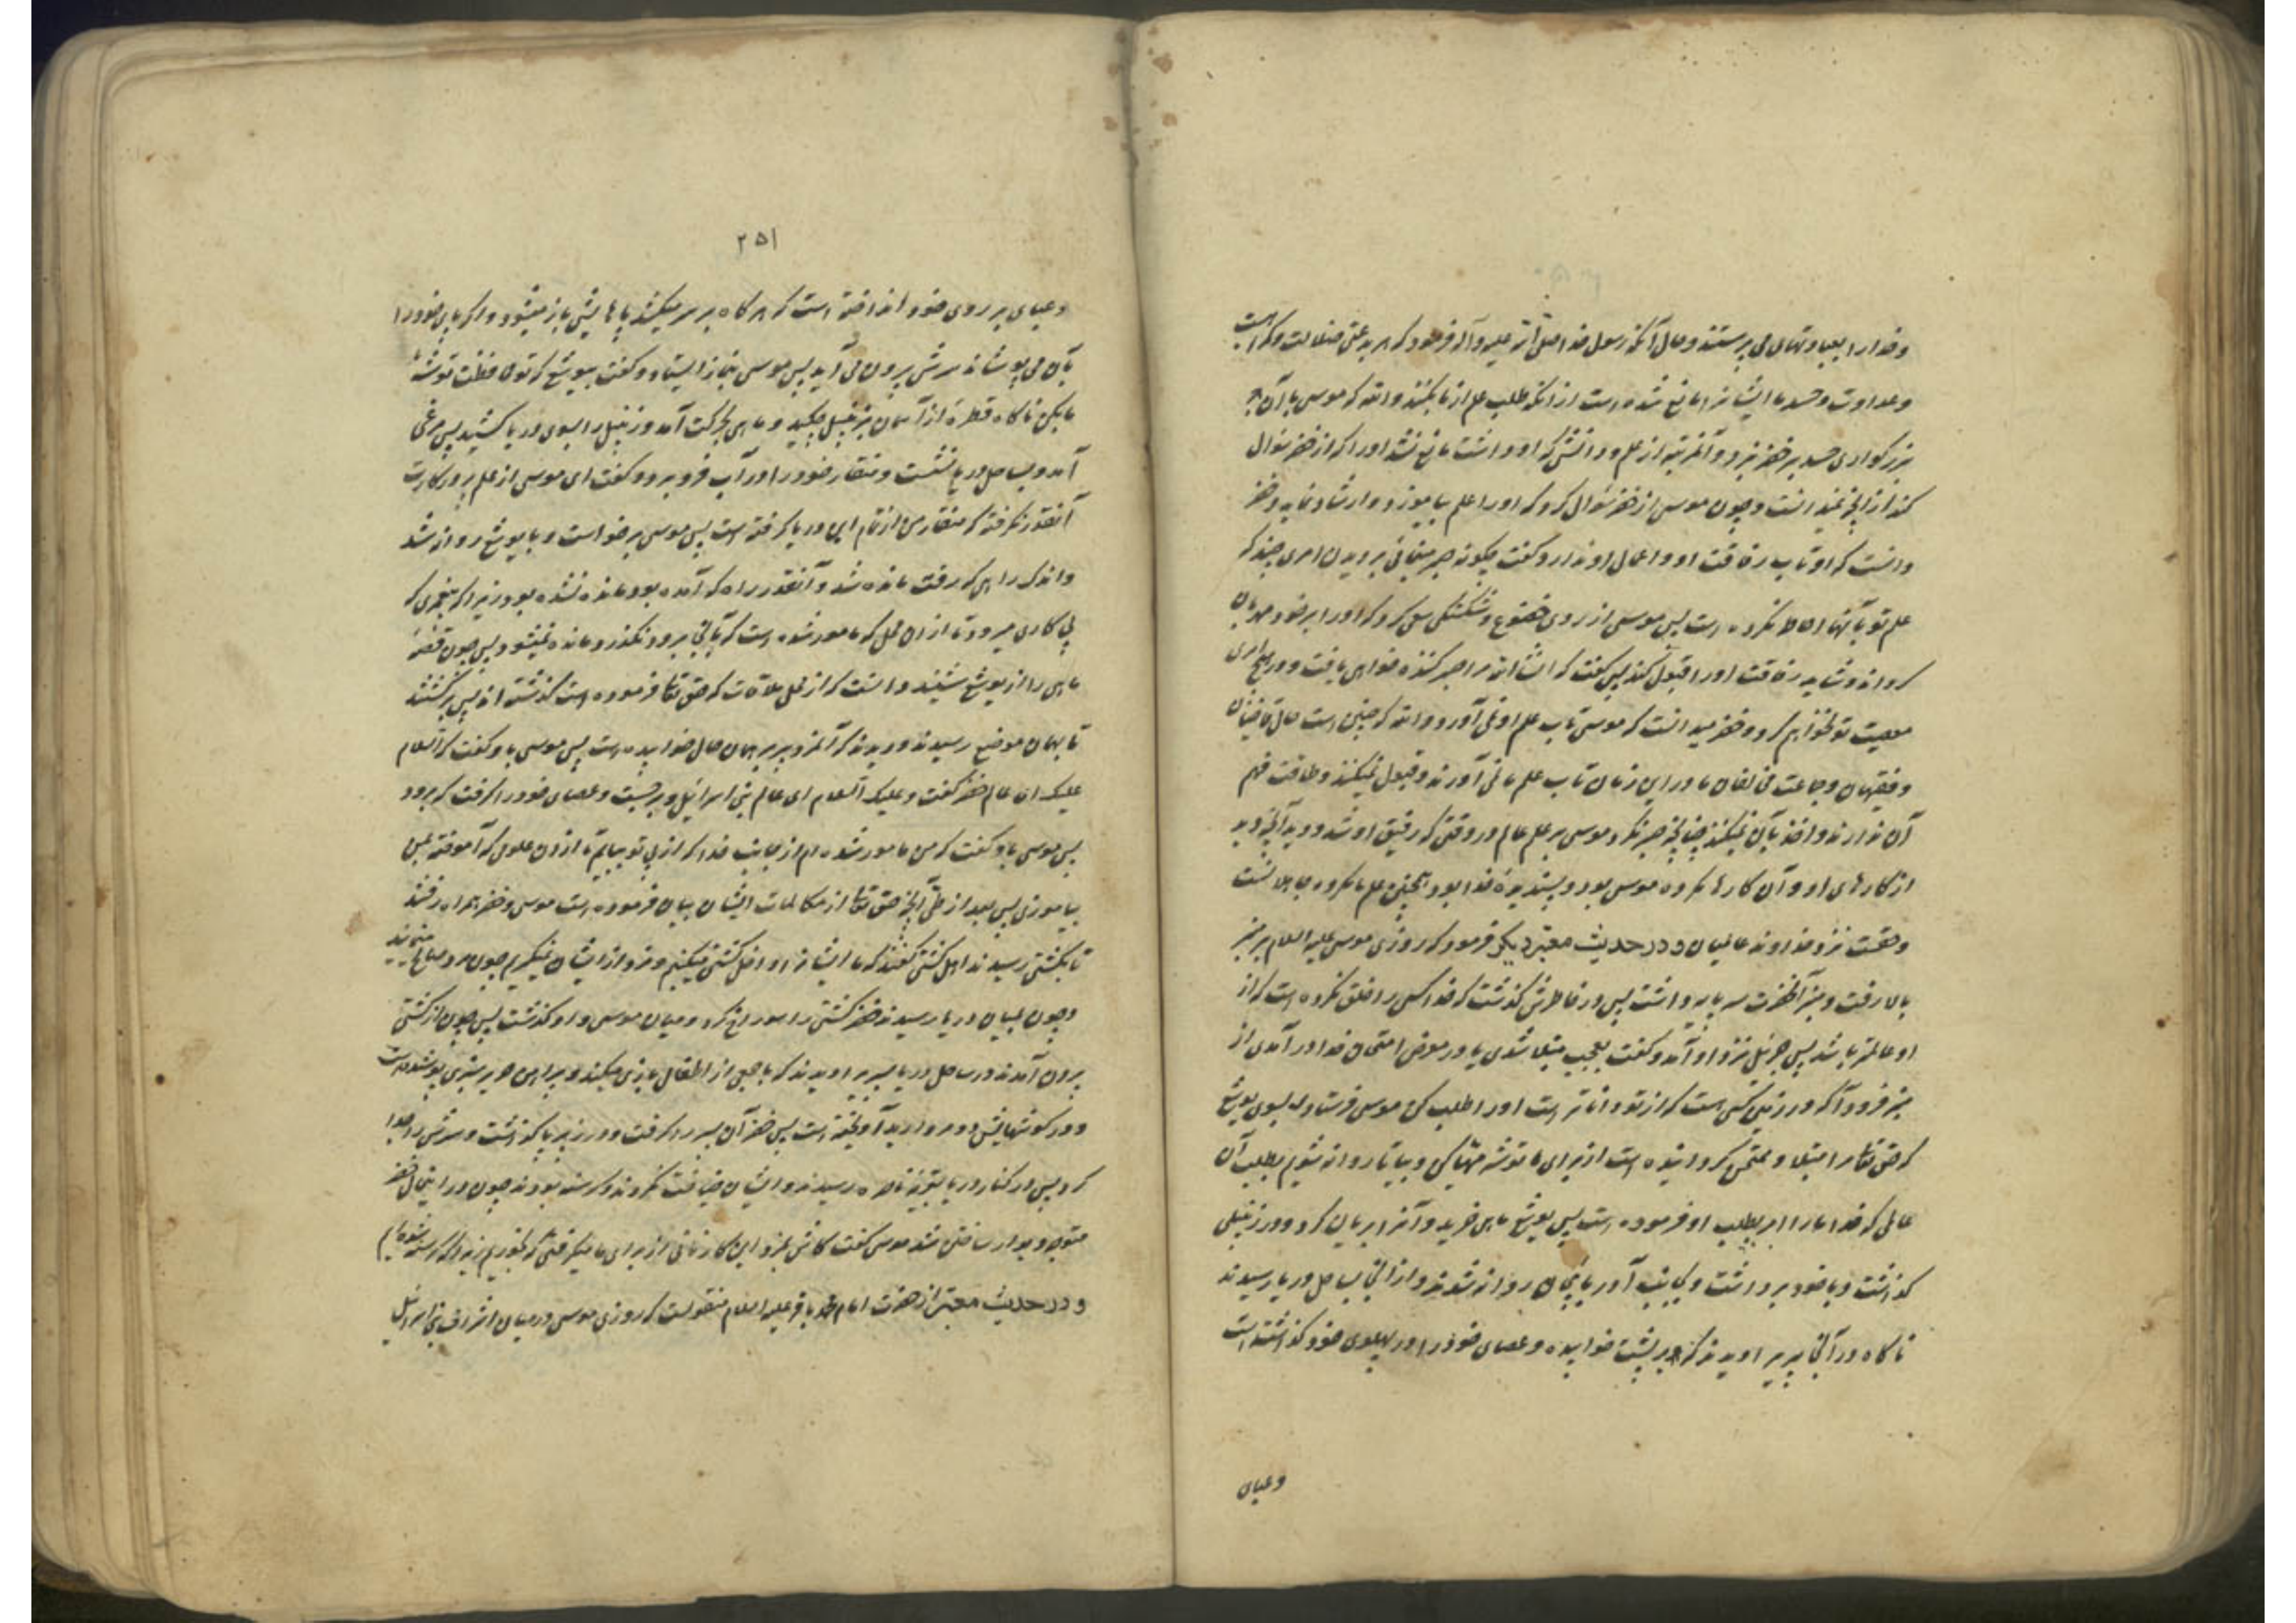 وخدا را بعبادتهای می پرستند وحال آنکه رسول خدا صلی الله علیه وآله فرمود که هر بدعتی ضلالت وگمراهیست
وعداوت وحسد ما ایشانرا مانع شده است از انکه طلب علم از ما بکنند والله که موسی با آن
بزرگواری حسد بر خضر نبرد وآنمرتبه از علم ودانشی که او داشت مانع نشد او را که از خضر سؤال
کند از آنچه نمیدانست وچون موسی از خضر سؤال کرد که او را علم بیاموزد وارشاد نماید وخضر
دانست که او تاب رفاقت او واعمال او ندارد گفت چگونه صبر میتوانی بر دیدن امری چند که
علم تو بآنها احاطه نکرده است پس موسی از روی خضوع وشکستگی سعی کرد که او را بر خود مهربان
کرداند وشاید رفاقت او را قبول کند پس گفت که انشاء الله مرا صبر کننده خواهی یافت ودر هیچ امری
معصیت تو نخواهم کرد وخضر میدانست که موسی تاب علم او نمی آورد والله که چنین است حال قاضیان
وفقیهان وجماعت مخالفان ما در این زمان تاب علم ما نمی آورند وقبول نمیکنند وطاقت فهم
آن ندارند واخذ بآن نمیکنند چنانچه صبر نکرد موسی بر علم عالم در وقتی که رفیق او شد ودید آنچه دید
از کارهای او وآن کارها مکروه موسی بود وپسندیدۀ خدا بود همچنین علم ما مکروه جاهلانست
وحقست نزد خداوند عالمیان ودر حدیث معتبر دیگر فرمود که روزی موسی علیه السلام بر منبر
بالا رفت ومنبر آنحضرت سه پایه داشت پس در خاطرش گذشت که خدا کسی را خلق نکرده است که از
او عالمتر باشد پس جبرئیل نزد او آمد وگفت بعجب مبتلا شدی یا در معرض امتحان خدا در آمدی از
منبر فرود آ که در زمین کسی است که از تو داناتر است او را طلب کن موسی فرستاد بسوی یوشع
که حق تعالی مرا مبتلا وممتحن کردانیده است از برای ما توشه مهیا کن وبیا تا روانه شویم بطلب آن
عالمی که خدا ما را امر بطلب او فرموده است پس یوشع ماهی خرید وآنرا بریان کرد ودر زنبیلی
گذاشت وبا خود برداشت وبجانب آذربایجان روانه شدند واز آنجا بساحل دریا رسیدند
ناگاه در آنجا پیری را دیدند که بر پشت خوابیده وعصای خود را در پهلوی خود گذاشته است
وعبای
۲۵۱
وعبای بر روی خود انداخته است که هرگاه بر سر میکشد پاهایش باز میشود واگر پای خود را
بآن می پوشاند سرش بیرون می آید پس موسی بنماز ایستاد وگفت بیوشع که تو محافظت توشۀ
ما بکن ناگاه قطرۀ از آسمان بزنبیل چکید وماهی بحرکت آمد وزنبیل را بسوی دریا کشید پس مرغی
آمد وبساحل دریا نشست ومنقار خود را در آب فرو برد وگفت ای موسی از علم پروردگارت
آنقدر نگرفتۀ که منقار من از تمام این دریا گرفته است پس موسی برخواست وبا یوشع روانه شد
واندک راهی که رفت مانده شد وآنقدر راه که آمده بود مانده نشده بود زیرا که پیغمبری که
پی کاری میرود تا از آن محل که مامور شده است که بآنجا برود نگذرد مانده نمیشود پس چون قصۀ
ماهی را از یوشع شنید دانست که از محل ملاقات که حق تعالی فرموده است گذشته اند پس برگشتند
تا بهمان موضع رسیدند ودیدند که آنمرد پیر بهمان حال خوابیده است پس موسی باو گفت که السلام
علیک ای عالم خضر گفت وعلیک السلام ای عالم بنی اسرائیل وبرجست وعصای خود را گرفت که برود
پس موسی باو گفت که من مامور شده ام از جانب خدا که از پی تو بیایم تا از آن علومی که آموختۀ بمن
بیاموزی پس بعد از طی آنچه حق تعالی از مکالمات ایشان بیان فرموده است موسی وخضر همراه رفتند
تا بکشتی رسیدند اهل کشتی گفتند که ما ایشانرا داخل کشتی میکنیم ومزد از ایشان نمیگیریم چون مرد صالح مینمایند
وچون بمیان دریا رسیدند خضر کشتی را سوراخ کرد ومیان موسی واو گذشت پس چون از کشتی
بیرون آمدند در ساحل دریا پسری را دیدند که با جمعی از اطفال بازی میکند وپیراهن حریر سبزی پوشیده است
ودر گوشهایش دو مروارید آویخته است پس خضر آن پسر را گرفت ودر زیر پا گذاشت وسرش را جدا
کرد پس در کنار دریا بقریۀ ناصره رسیدند وایشان ضیافت نکردند وگرسنه بودند چون در اینحال خضر
متوجه دیوار ساختن شد موسی گفت کاش مزد این کار نانی از برای ما میگرفتی که بخوریم زیرا که گرسنه شده ایم
ودر حدیث معتبر از حضرت امام محمد باقر علیه السلام منقولست که روزی موسی در میان اشراف بنی اسرائیل